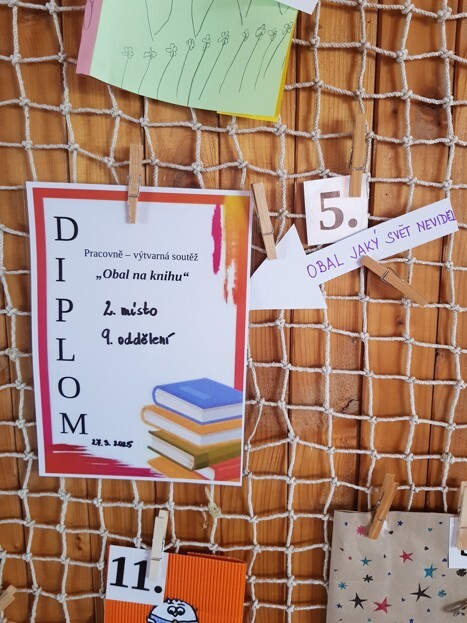 DIPLOM
Pracovně – výtvarná soutěž
„Obal na knihu“
2. místo
9. oddělení
27. 3. 2025
5.
OBAL JAKÝ SVĚT NEVIDĚL
11.